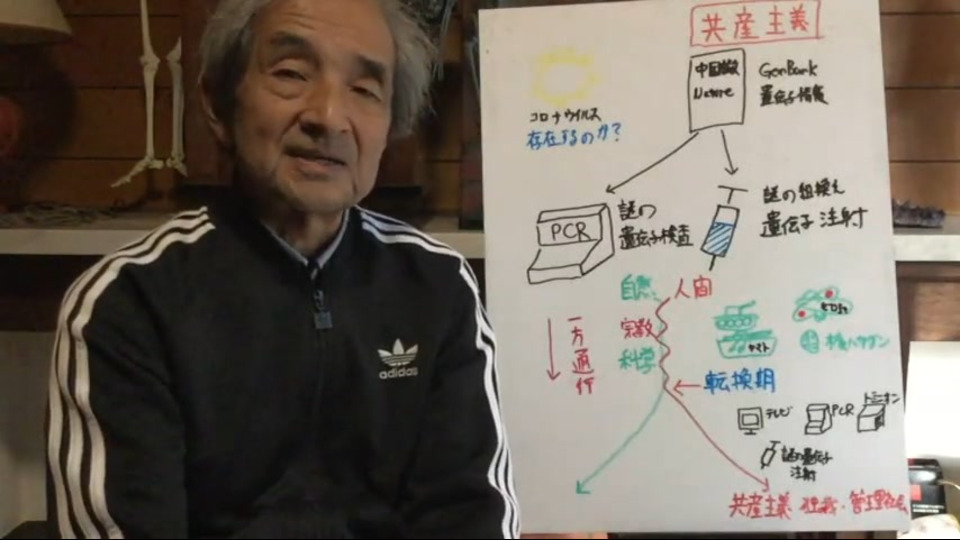 共産主義
中国製
Nature
GenBank
遺伝子情報
コロナウイルス
存在するのか?
PCR
謎の
遺伝子検査
謎の組換え
遺伝子注射
自然
人間
一方通行
宗教
科学
ヤマト
adidas
転換期
テレビ
PCR
ドミニオン
謎の遺伝子
注射
共産主義・独裁・管理社会